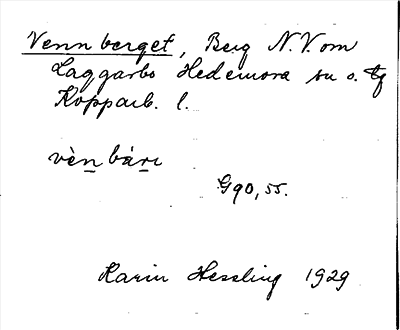 Vennberget, Berg N.V. om
Laggarbo Hedemora sn o. tg
Kopparb. l.
vèn bárı
G90, 55.
Karin Hessling 1929